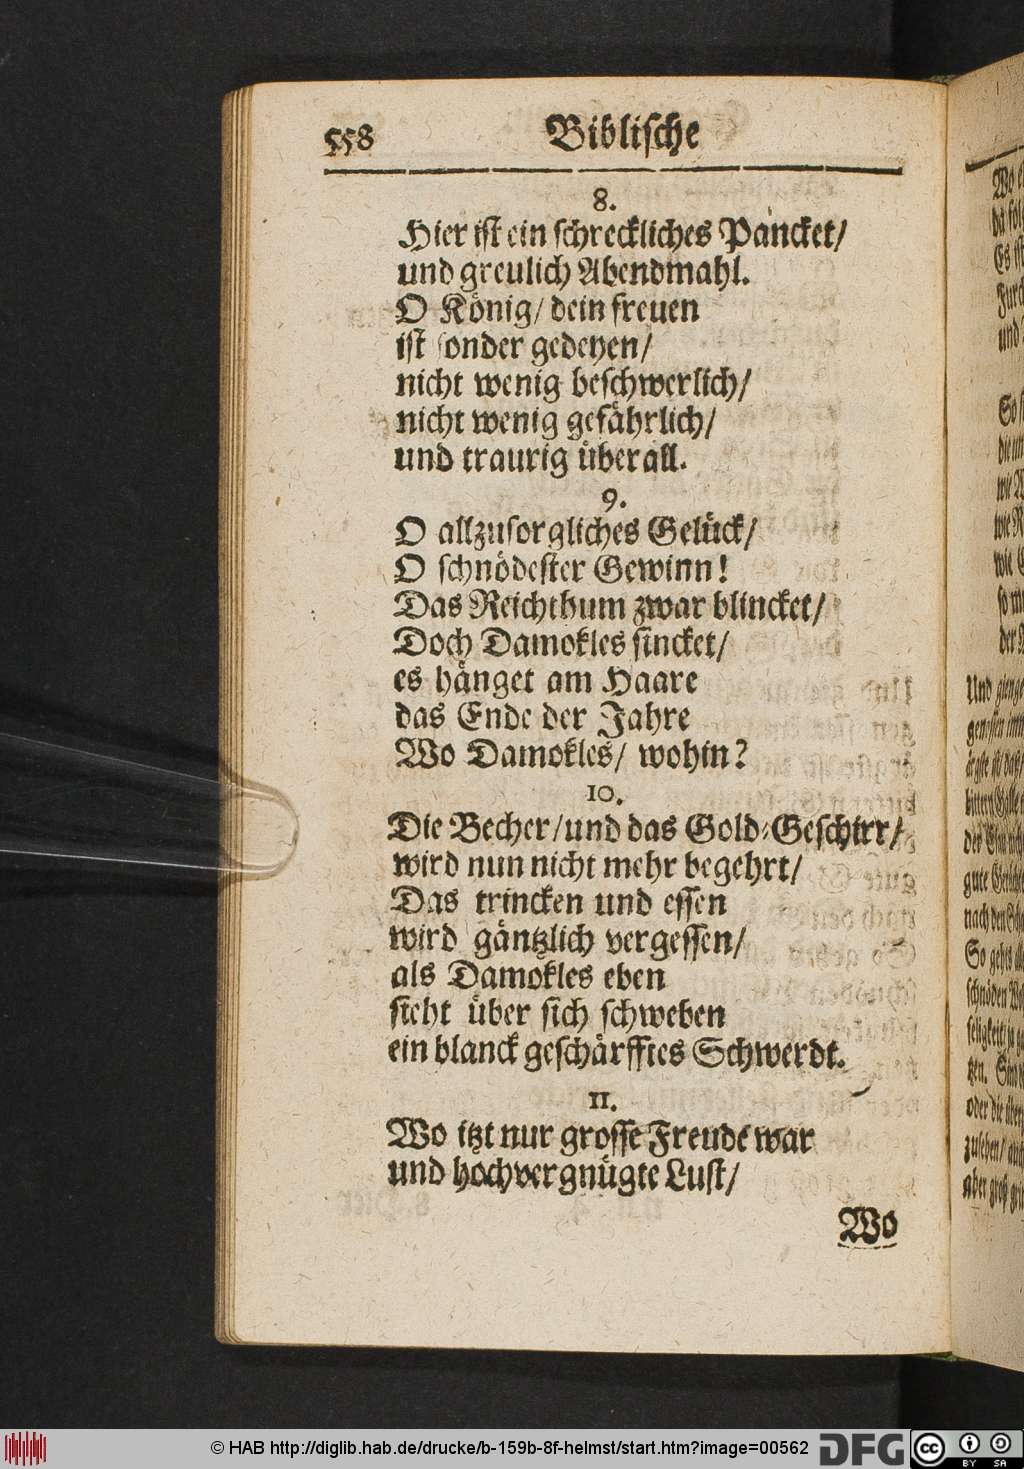 558 Biblische
8.
Hier ist ein schreckliches Pancket/
und greulich Abendmahl.
O König/ dein freuen
ist sonder gedeyen/
nicht wenig beschwerlich/
nicht wenig gefährlich/
und traurig überall.
9.
O allzusorgliches Gelück/
O schnödester Gewinn!
Das Reichthum zwar blincket/
Doch Damokles sincket/
es hänget am Haare
das Ende der Jahre
Wo Damokles/ wohin?
10.
Die Becher/ und das Gold-Geschirr/
wird nun nicht mehr begehrt/
Das trincken und essen
wird gäntzlich vergessen/
als Damokles eben
sieht über sich schweben
ein blanck geschärfftes Schwerdt.
11.
Wo itzt nur grosse Freude war
und hochvergnügte Lust/
Wo
© HAB http://diglib.hab.de/drucke/b-159b-8f-helmst/start.htm?image=00562 DFG cc BY SA